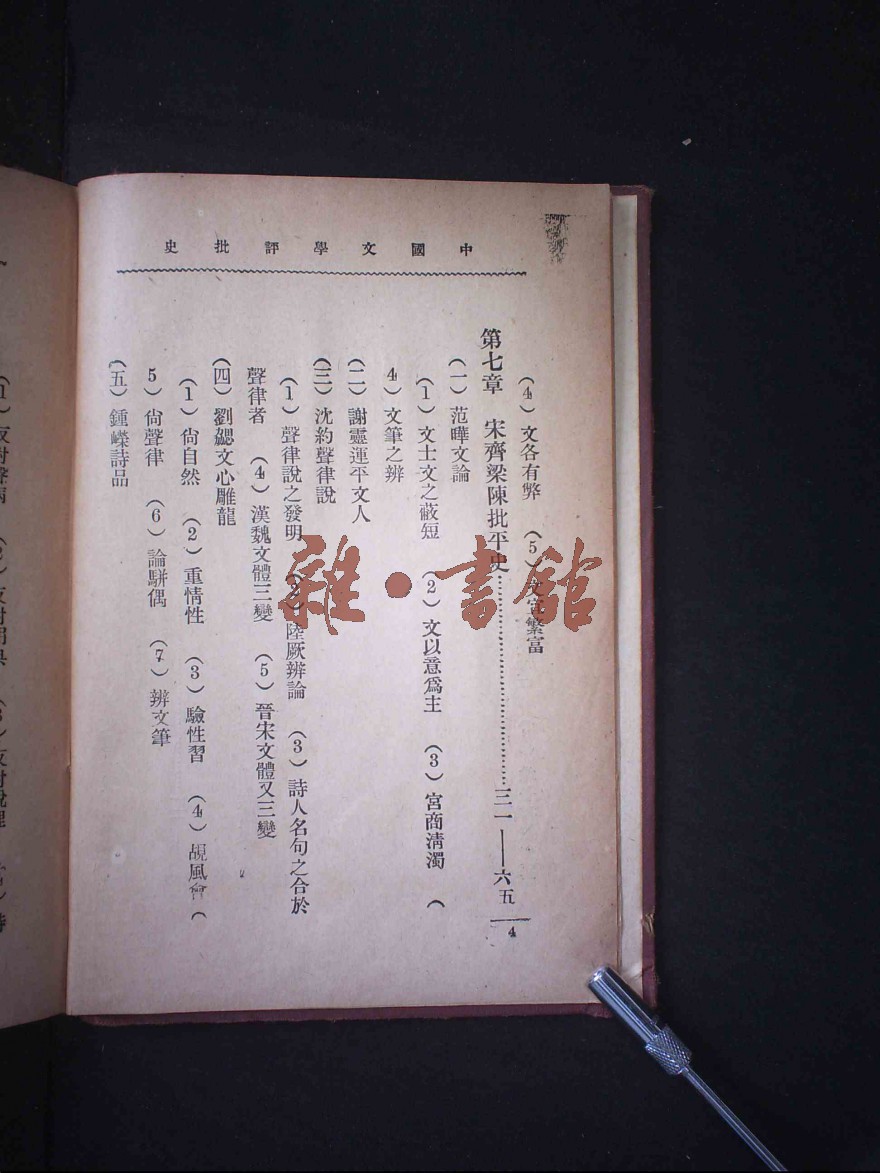 中國文學評批史
(4) 文各有弊 (5) 文宜繁富
第七章 宋齊梁陳批平史……………………三一——六五
(一) 范曄文論
(1) 文士文之蔽短 (2) 文以意爲主 (3) 宮商淸濁 (
4) 文筆之辨
(二) 謝靈運平文人
(三) 沈約聲律說
(1) 聲律說之發明 (2) 陸厥辨論 (3) 詩人名句之合於
聲律者 (4) 漢魏文體三變 (5) 晉宋文體又三變
(四) 劉勰文心雕龍
(1) 尙自然 (2) 重情性 (3) 驗性習 (4) 覘風會 (
5) 尙聲律 (6) 論駢偶 (7) 辨文筆
(五) 鍾嶸詩品
4
雜·書館